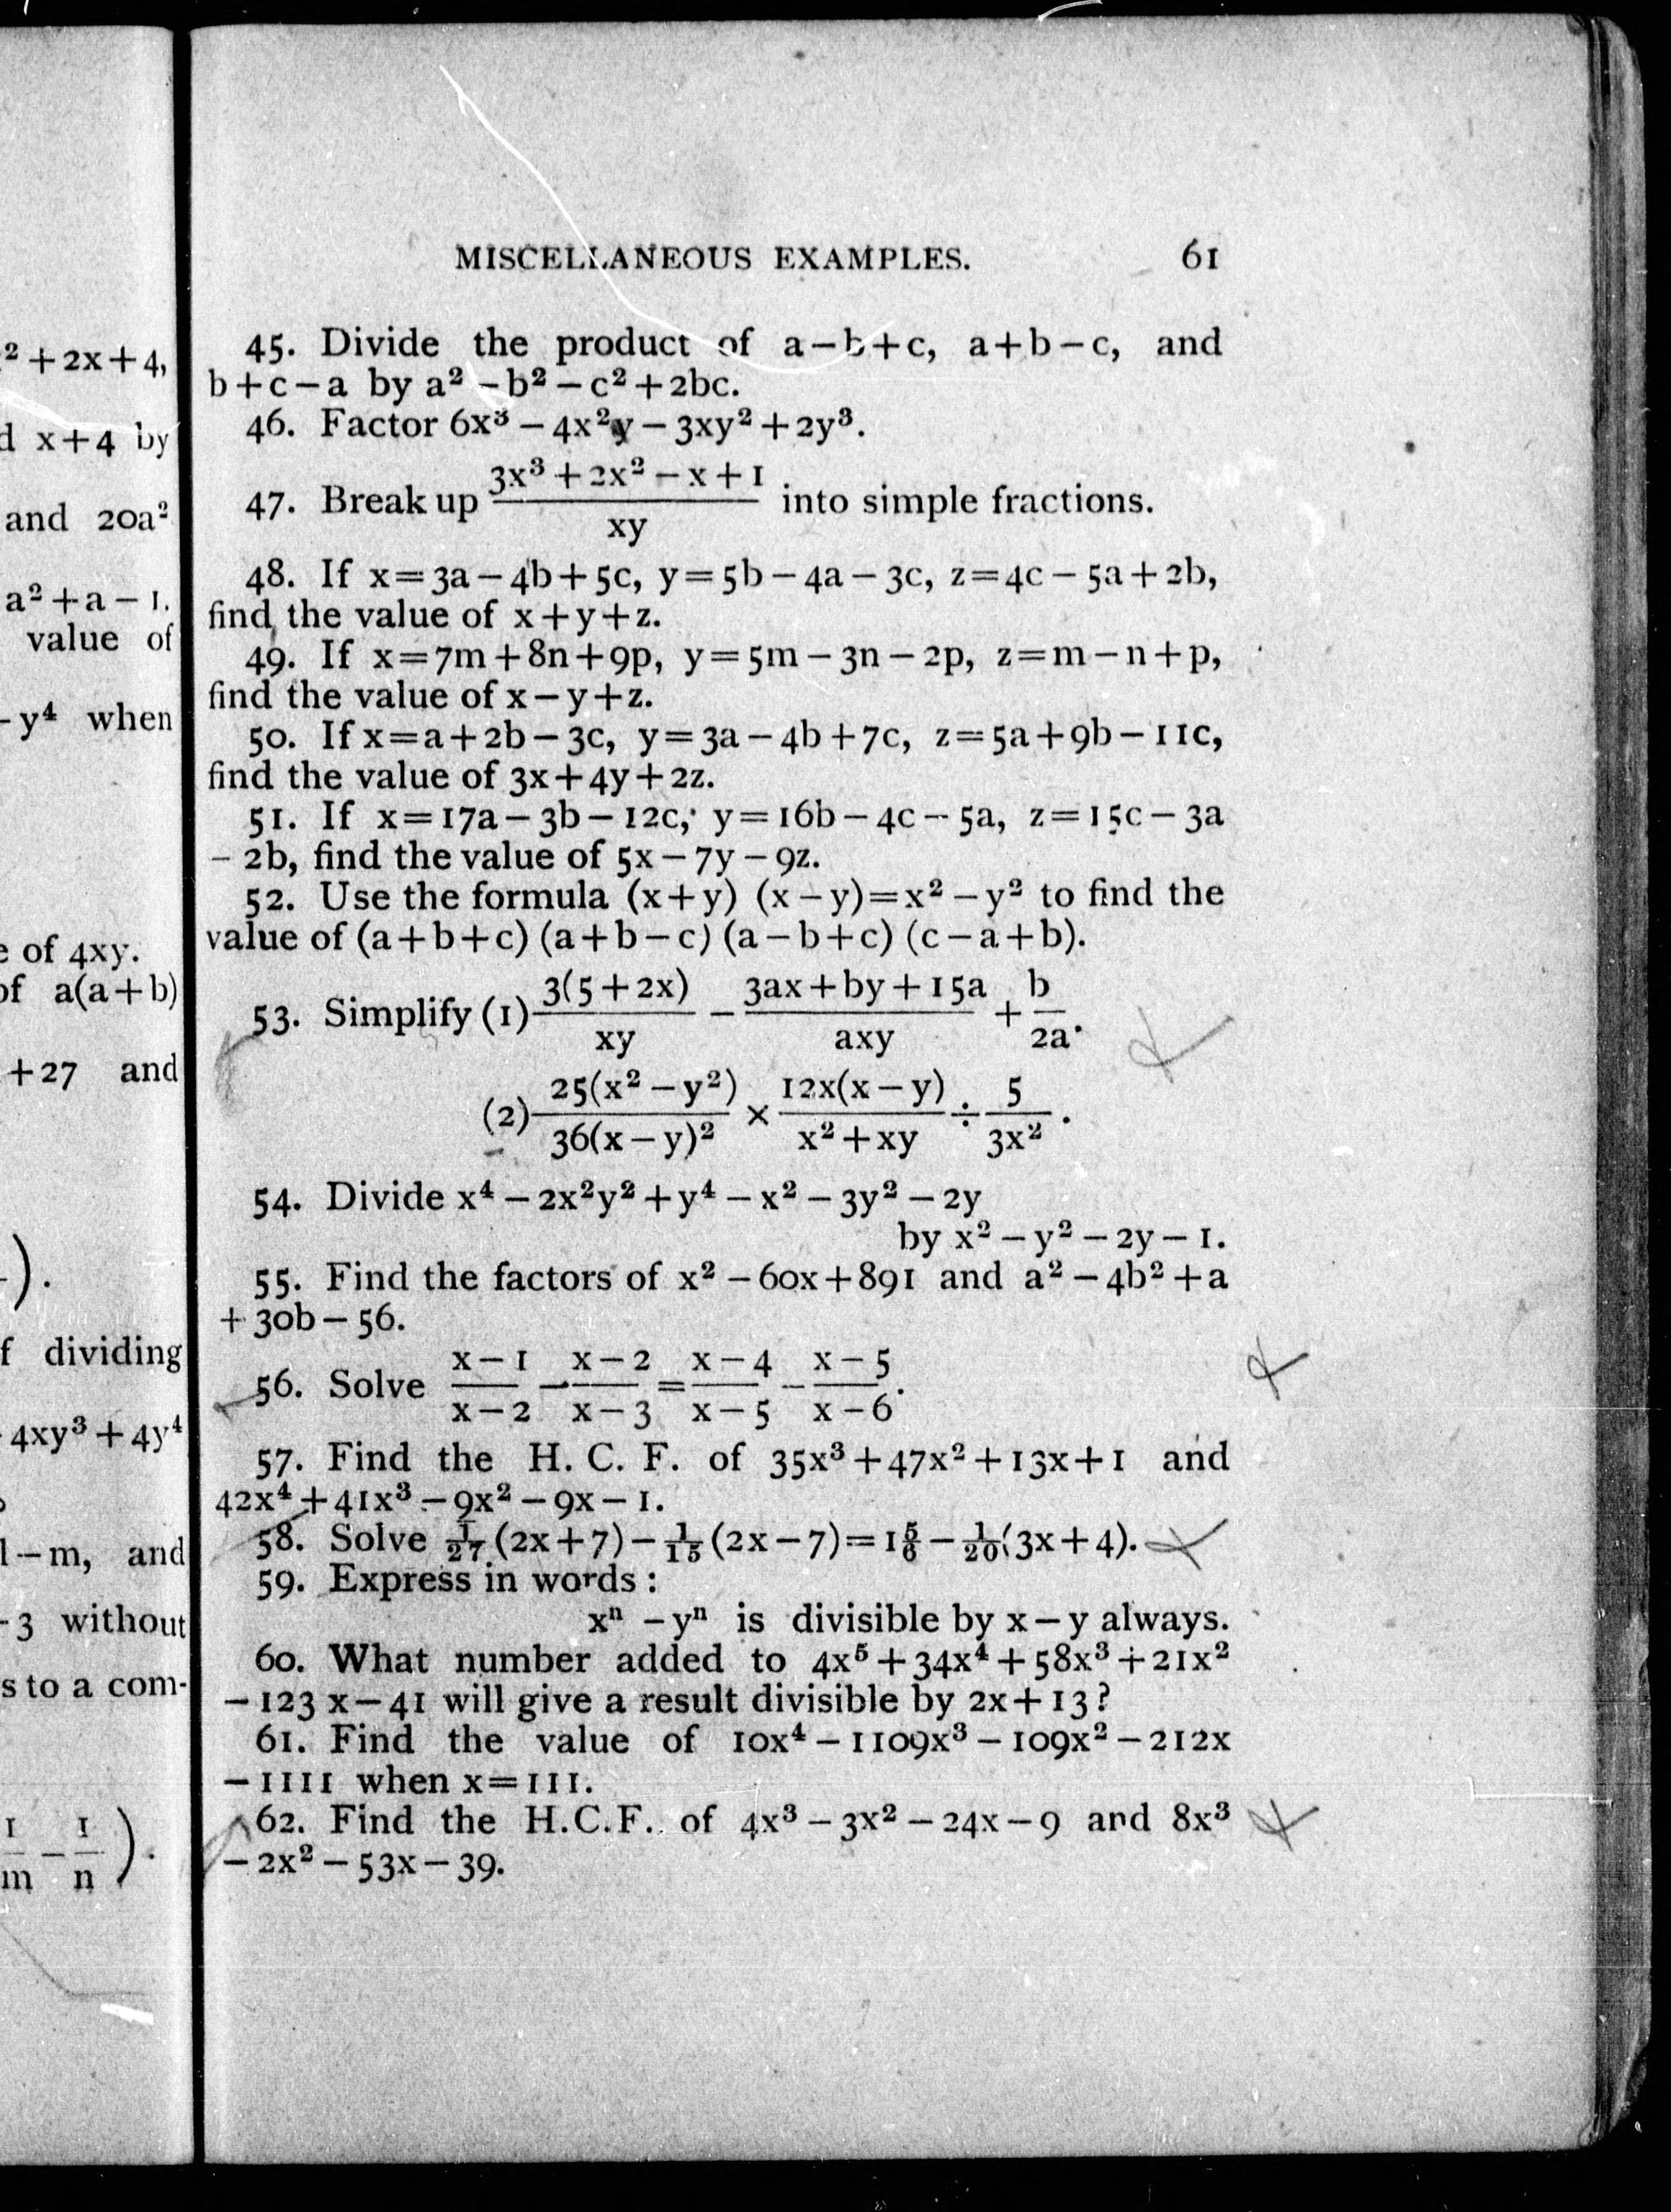 ² + 2x + 4,
d x + 4 by
and 20a²
a² + a − 1.
value of
- y⁴ when
e of 4xy.
of a(a + b)
+ 27 and
).
f dividing
4xy³ + 4y⁴
l − m, and
- 3 without
s to a com-
1/m − 1/n ).
MISCELLANEOUS EXAMPLES. 61
45. Divide the product of a − b + c, a + b − c, and
b + c − a by a² − b² − c² + 2bc.
46. Factor 6x³ − 4x²y − 3xy² + 2y³.
47. Break up (3x³ + 2x² − x + 1)/xy into simple fractions.
48. If x = 3a − 4b + 5c, y = 5b − 4a − 3c, z = 4c − 5a + 2b,
find the value of x + y + z.
49. If x = 7m + 8n + 9p, y = 5m − 3n − 2p, z = m − n + p,
find the value of x − y + z.
50. If x = a + 2b − 3c, y = 3a − 4b + 7c, z = 5a + 9b − 11c,
find the value of 3x + 4y + 2z.
51. If x = 17a − 3b − 12c, y = 16b − 4c − 5a, z = 15c − 3a
− 2b, find the value of 5x − 7y − 9z.
52. Use the formula (x + y) (x − y) = x² − y² to find the
value of (a + b + c) (a + b − c) (a − b + c) (c − a + b).
53. Simplify (1) 3(5 + 2x)/xy − (3ax + by + 15a)/axy + b/2a.
(2) 25(x² − y²)/36(x − y)² × 12x(x − y)/(x² + xy) ÷ 5/3x².
54. Divide x⁴ − 2x²y² + y⁴ − x² − 3y² − 2y
by x² − y² − 2y − 1.
55. Find the factors of x² − 60x + 891 and a² − 4b² + a
+ 30b − 56.
56. Solve (x − 1)/(x − 2) − (x − 2)/(x − 3) = (x − 4)/(x − 5) − (x − 5)/(x − 6).
57. Find the H. C. F. of 35x³ + 47x² + 13x + 1 and
42x⁴ + 41x³ − 9x² − 9x − 1.
58. Solve 1/27 (2x + 7) − 1/15 (2x − 7) = 1 5/6 − 1/20 (3x + 4).
59. Express in words :
xⁿ − yⁿ is divisible by x − y always.
60. What number added to 4x⁵ + 34x⁴ + 58x³ + 21x²
− 123 x − 41 will give a result divisible by 2x + 13 ?
61. Find the value of 10x⁴ − 1109x³ − 109x² − 212x
− 1111 when x = 111.
62. Find the H.C.F. of 4x³ − 3x² − 24x − 9 and 8x³
− 2x² − 53x − 39.